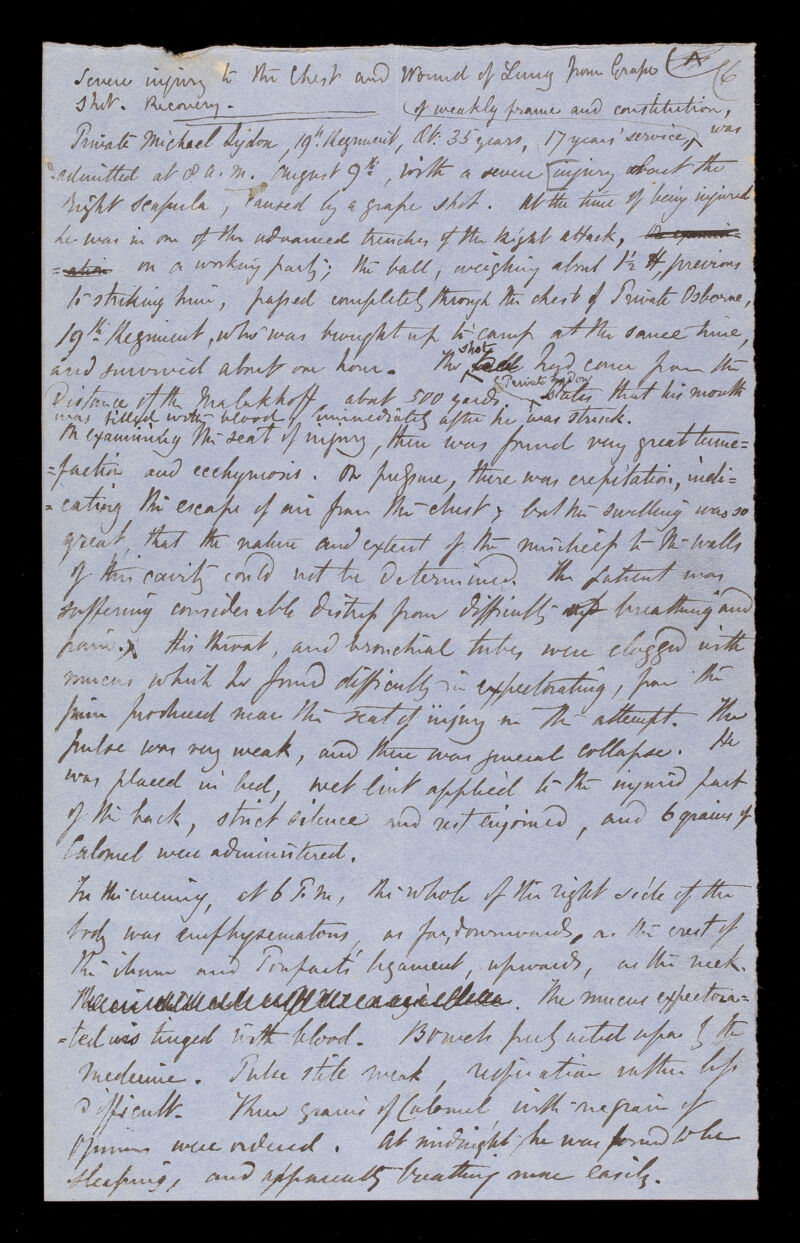 Severe injury to the Chest and Wound of Lung from Grape
A
6
Shot. Recovery.
of weakly frame and constitution,
Private Michael Rigdon, 19th Regiment, Æt. 35 years, 17 years' service, was
admitted at 8 a.m. August 9th, with a severe injury about the
right scapula, caused by a grape shot. At the time of being injured
he was in one of the advanced trenches of the right attack,
on a working party; the ball, weighing about 1½ ℔, previous
to striking him, passed completely through the chest of Private Osborne,
19th Regiment, who was brought up to camp at the same time,
and survived about one hour. The shot had come from the
Distance of the Malakhoff, about 500 yards. Private Rigdon states that his mouth
was filled with blood, immediately after he was struck.
On examining the seat of injury, there was found very great tume=
=faction and ecchymosis. On pressure, there was crepitation, indi=
=cating the escape of air from the chest; but the swelling was so
great, that the nature and extent of the mischief to the walls
of this cavity could not be determined. The patient was
suffering considerable distress from difficulty breathing and
pain. His throat, and bronchial tubes were clogged with
mucus which he found difficulty in expectorating, from the
pain produced near the seat of injury in the attempt. The
pulse was very weak, and there was general collapse. He
was placed in bed, wet lint applied to the injured part
of the back, strict silence and rest enjoined, and 6 grains of
Calomel were administered.
In the evening, at 6 P.m, the whole of the right side of the
body was emphysematous, as far, downwards, as the crest of
the ileum and Poupart's ligament, upwards, as the neck.
The mucus expectora=
=ted is tinged with blood. Bowels freely acted upon by the
medicine. Pulse still weak, respiration rather less
difficult. Three grains of Calomel with a grain of
Opium were ordered. At midnight he was found to be
sleeping, and apparently breathing more easily.